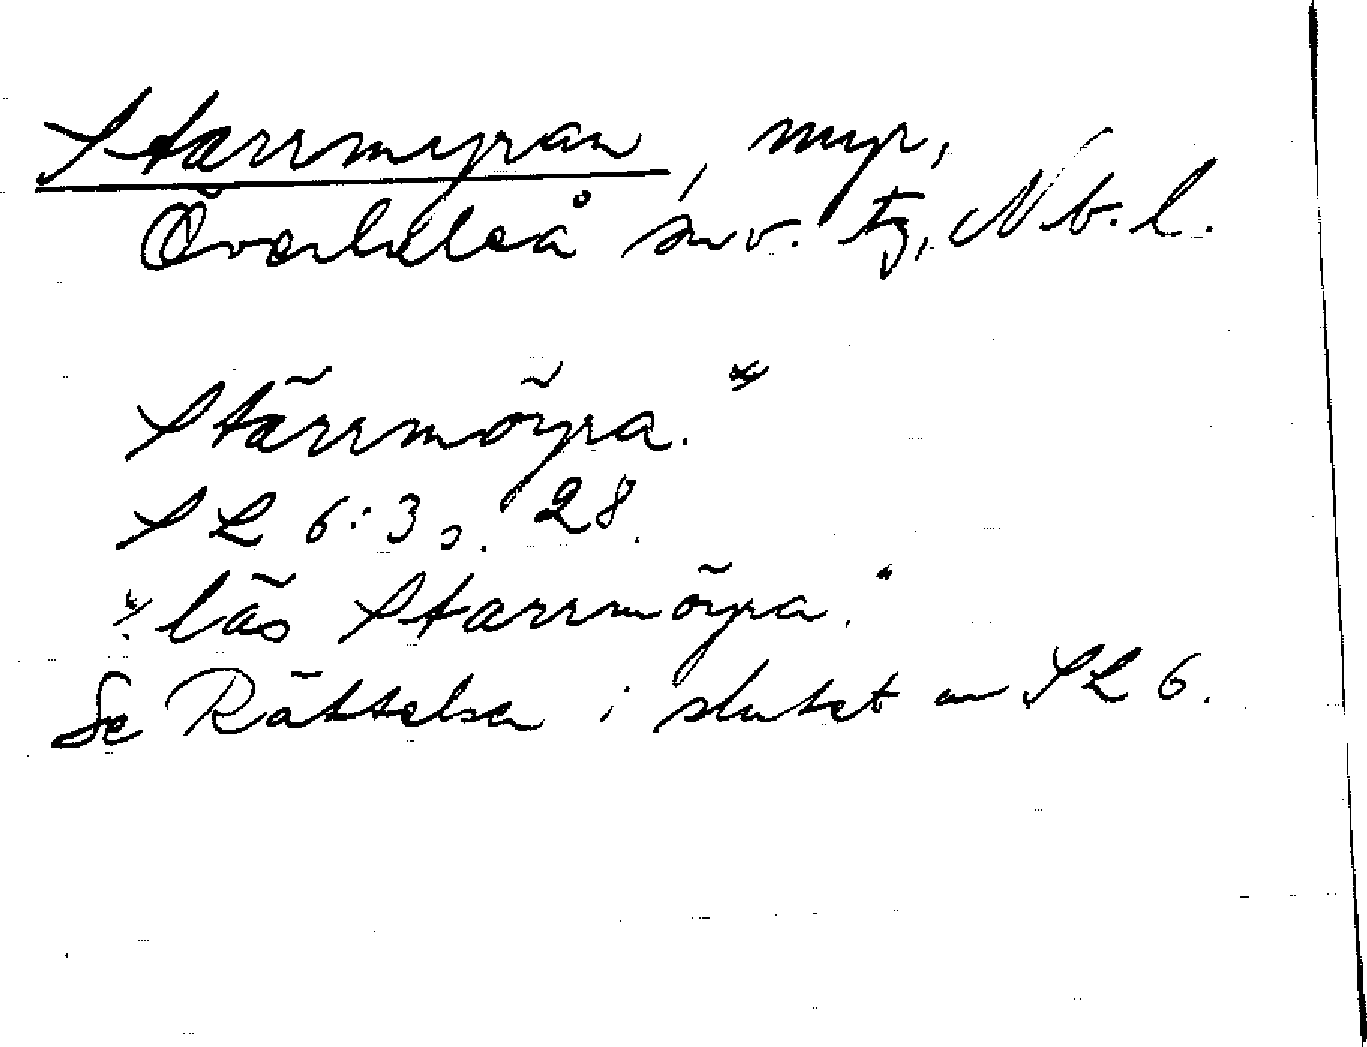 Starrmyran, myr,
Överluleå snv. tg, Nb. l.
Stärrmöyra.*
SL 6:3 s. 28.
* läs Starrmöyra.
Se Rättelser i slutet av SL 6.